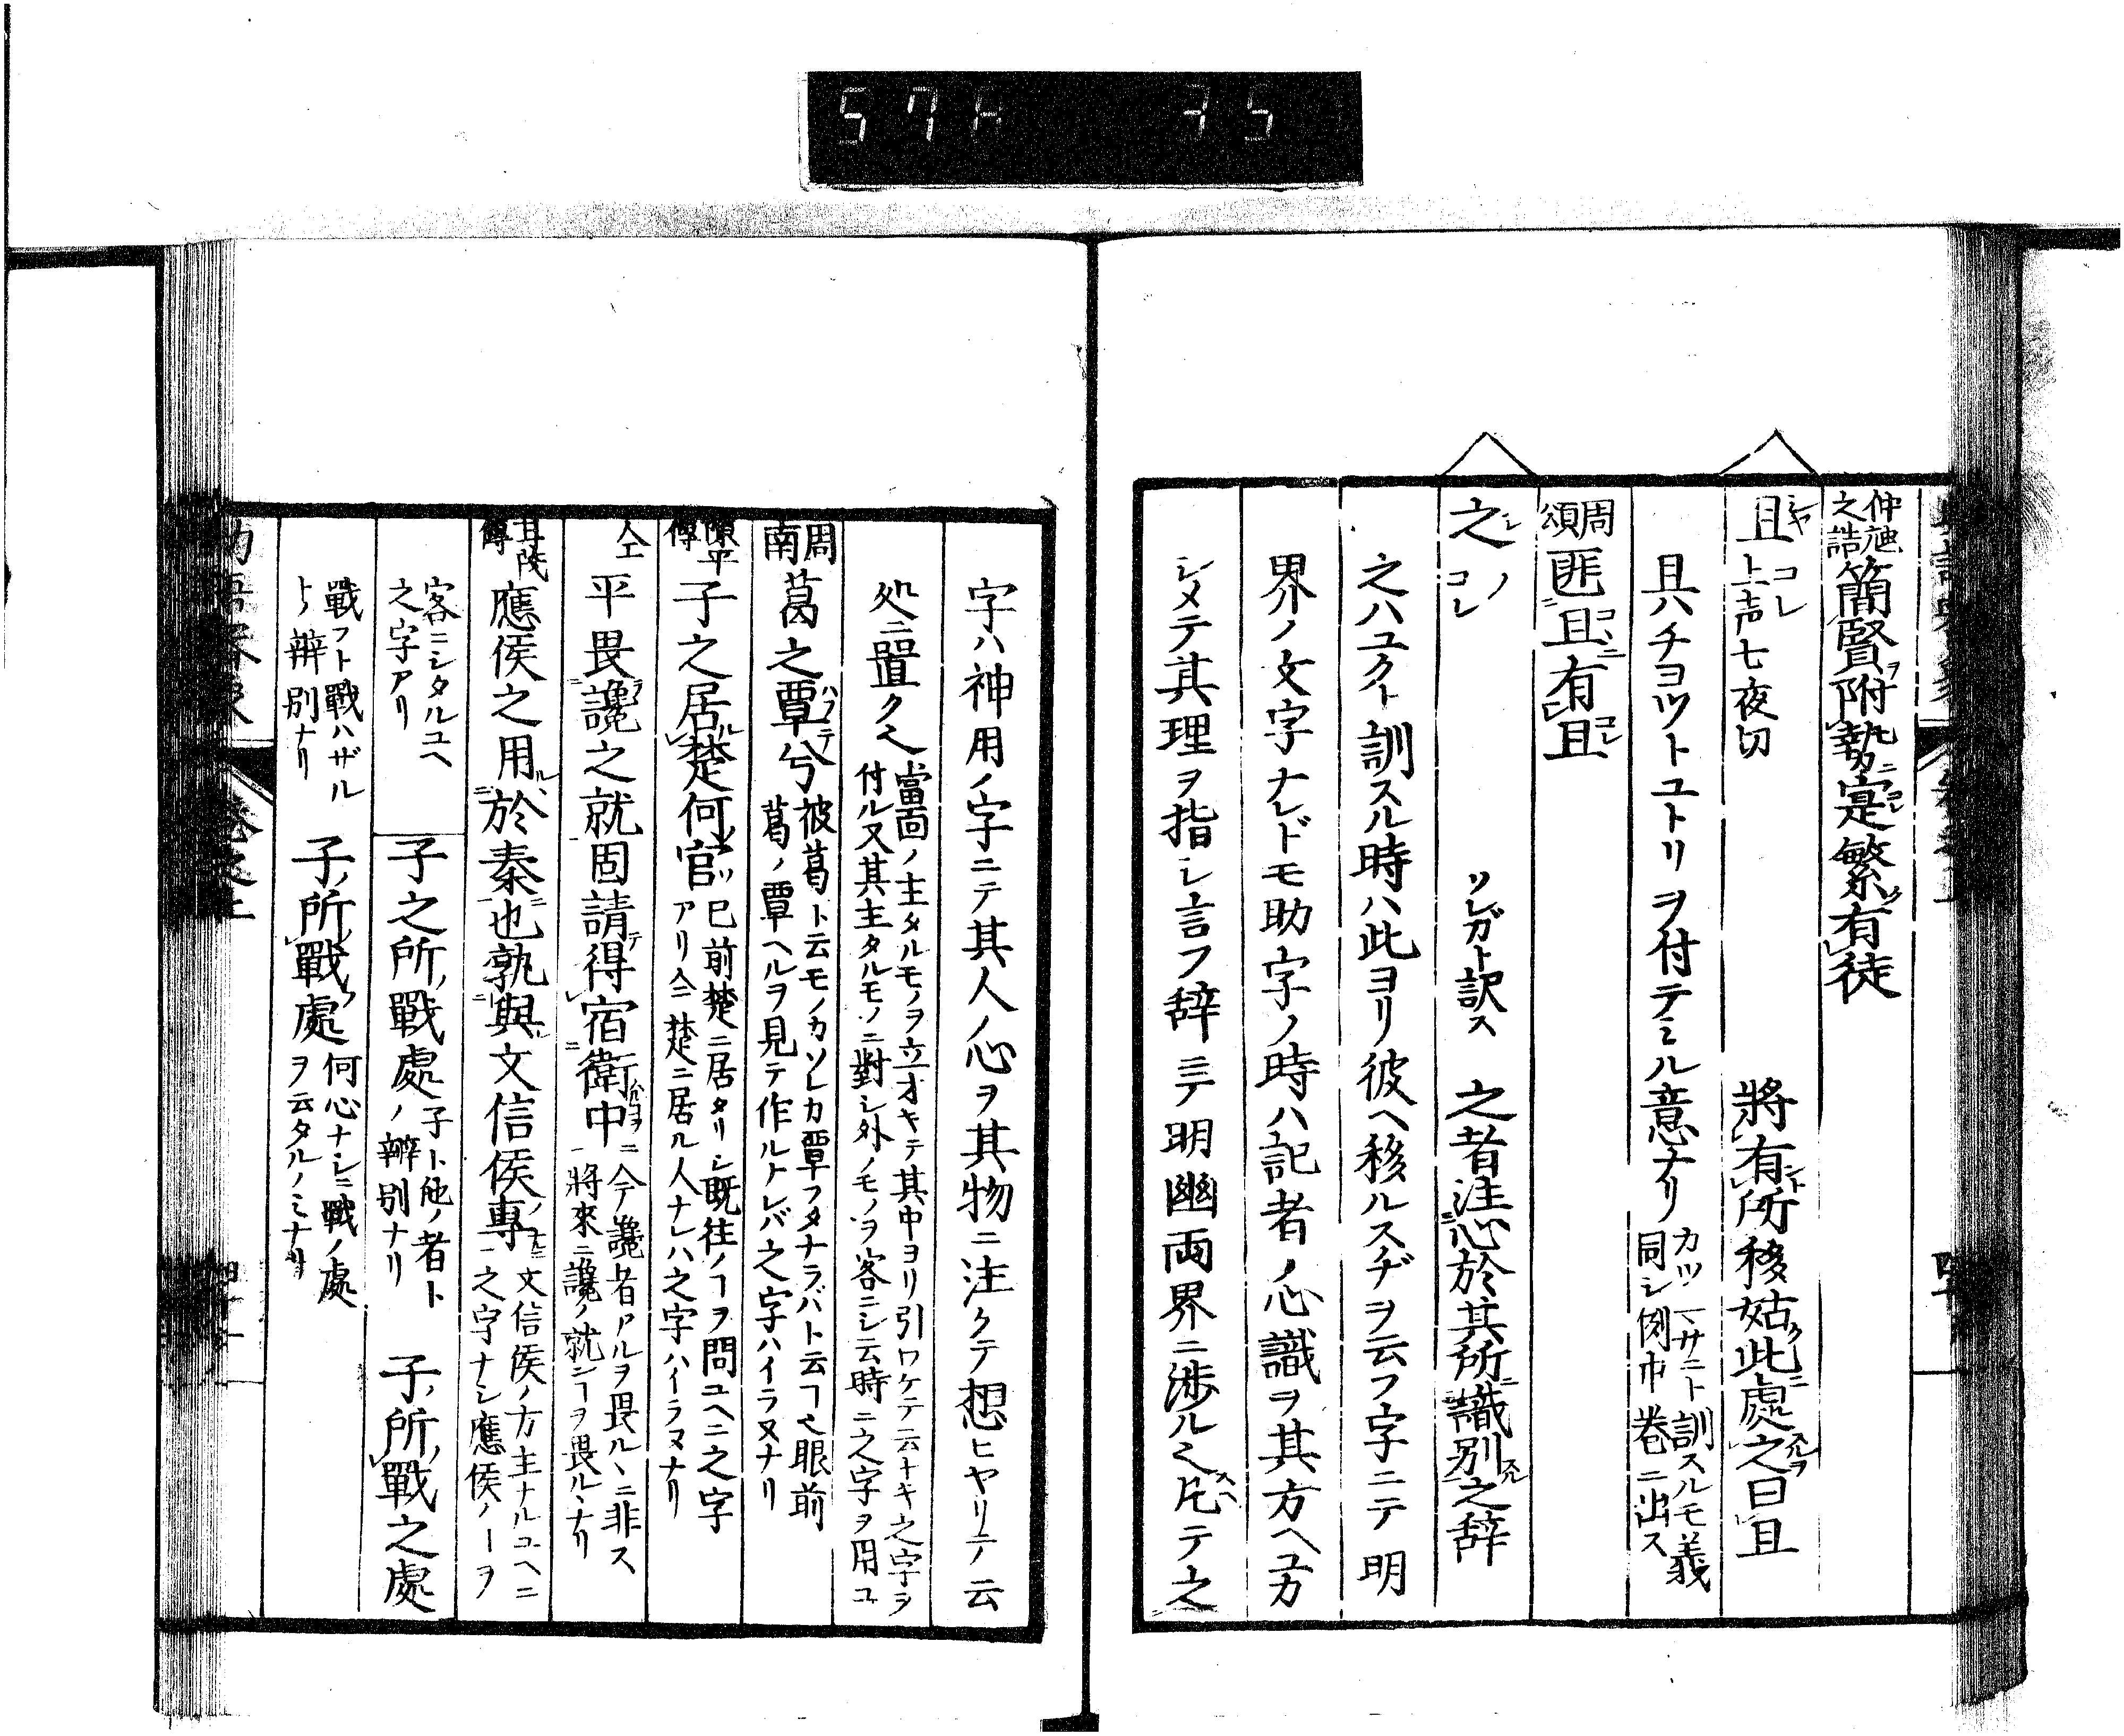 仲虺之誥 簡賢附勢寔繁有徒
且 シヤ コレ 上声七夜切 將有所移姑此處之曰且
且ハチヨツトユトリヲ付テミル意ナリ カツマサニト訓スルモ義同シ例中巻ニ出ス
周頌 匪且有且
之 シ ノ コレ ソレガト訳ス 之者注心於其所識別之辞
之ハユクト訓スル時ハ此ヨリ彼ヘ移ルスヂヲ云フ字ニテ明
界ノ文字ナレドモ助字ノ時ハ記者ノ心識ヲ其方ヘユカ
シメテ其理ヲ指シ言フ辞ニテ明幽両界ニ渉ル 凡テ之
字ハ神用ノ字ニテ其人ノ心ヲ其物ニ注ケテ想ヒヤリテ云
処ニ置ク 當面ノ主タルモノヲ立オキテ其中ヨリ引ワケテ云トキ之字ヲ付ル又其主タルモノニ對シ外ノモノヲ客ニシ云時ニ之字ヲ用ユ
周南 葛之覃兮 彼葛ト云モノカソレカ覃フタナラバト云 眼前葛ノ覃ヘルヲ見テ作ルトレバ之字ハイラヌナリ
陳平傳 子之居楚何官 已前楚ニ居タリシ既往ノヿヲ問ユヘニ之字アリ今楚ニ居ル人ナレハ之字ハイラヌナリ
仝上 平畏讒之就固請得宿衛中 今讒者アルヲ畏ルヽニ非ス將來ニ讒ノ就ンヿヲ畏ルヽナリ
甘茂傳 應侯之用於秦也孰與文信侯專 文信侯ノ方主ナルユヘニ之字ナシ應侯ノヿヲ
客ニシタルユヘ之字アリ 子之所戰處 子ト他ノ者トノ辨別ナリ 子所戰之處
戰フト戰ハザルトノ辨別ナリ 子所戰處 何心ナシニ戰ノ處ヲ云タルノミナリ